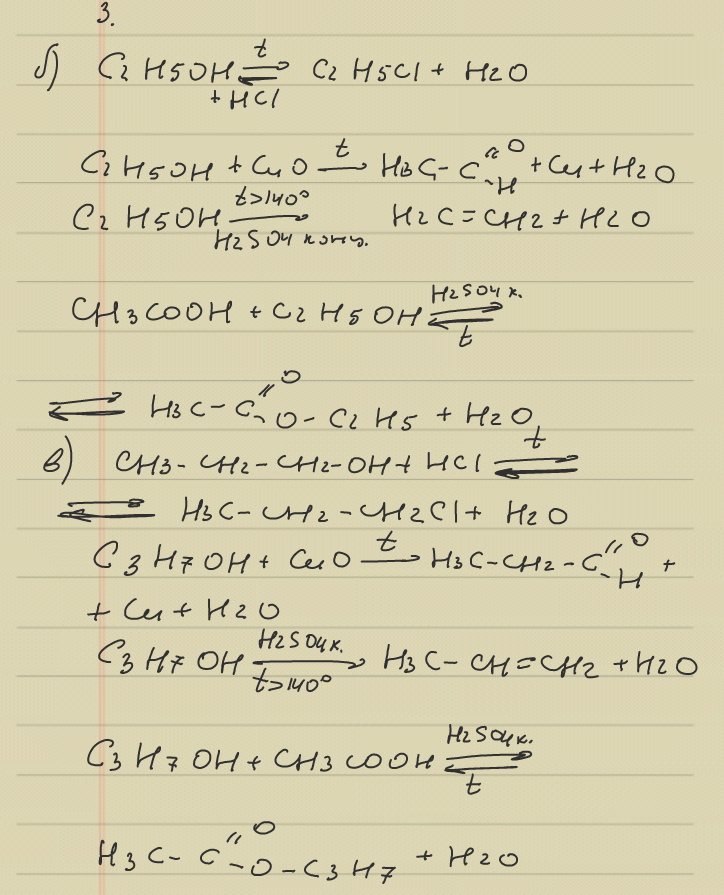 3.
б) C2H5OH ⇄ t +HCl C2H5Cl + H2O
C2H5OH + CuO →t H3C-C=O-H + Cu + H2O
C2H5OH →t>140° H2SO4 конц. H2C=CH2 + H2O
CH3COOH + C2H5OH ⇄ H2SO4 к. t
⇄ H3C-C=O-O-C2H5 + H2O
в) CH3-CH2-CH2-OH + HCl ⇄ t
⇄ H3C-CH2-CH2Cl + H2O
C3H7OH + CuO →t H3C-CH2-C=O-H +
+ Cu + H2O
C3H7OH →H2SO4к. t>140° H3C-CH=CH2 + H2O
C3H7OH + CH3COOH ⇄ H2SO4к. t
H3C-C=O-O-C3H7 + H2O